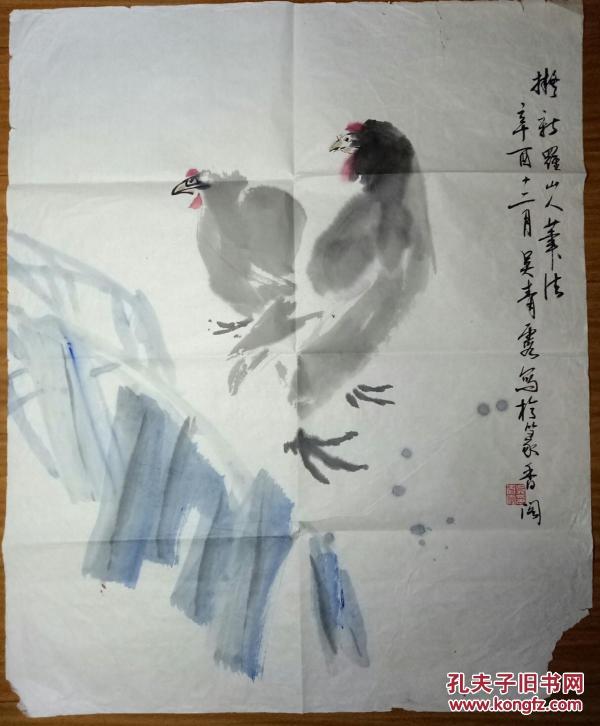 拟新罗山人笔法
辛酉十二月吴青霞写於篆香阁
孔夫子旧书网
www.kongfz.com